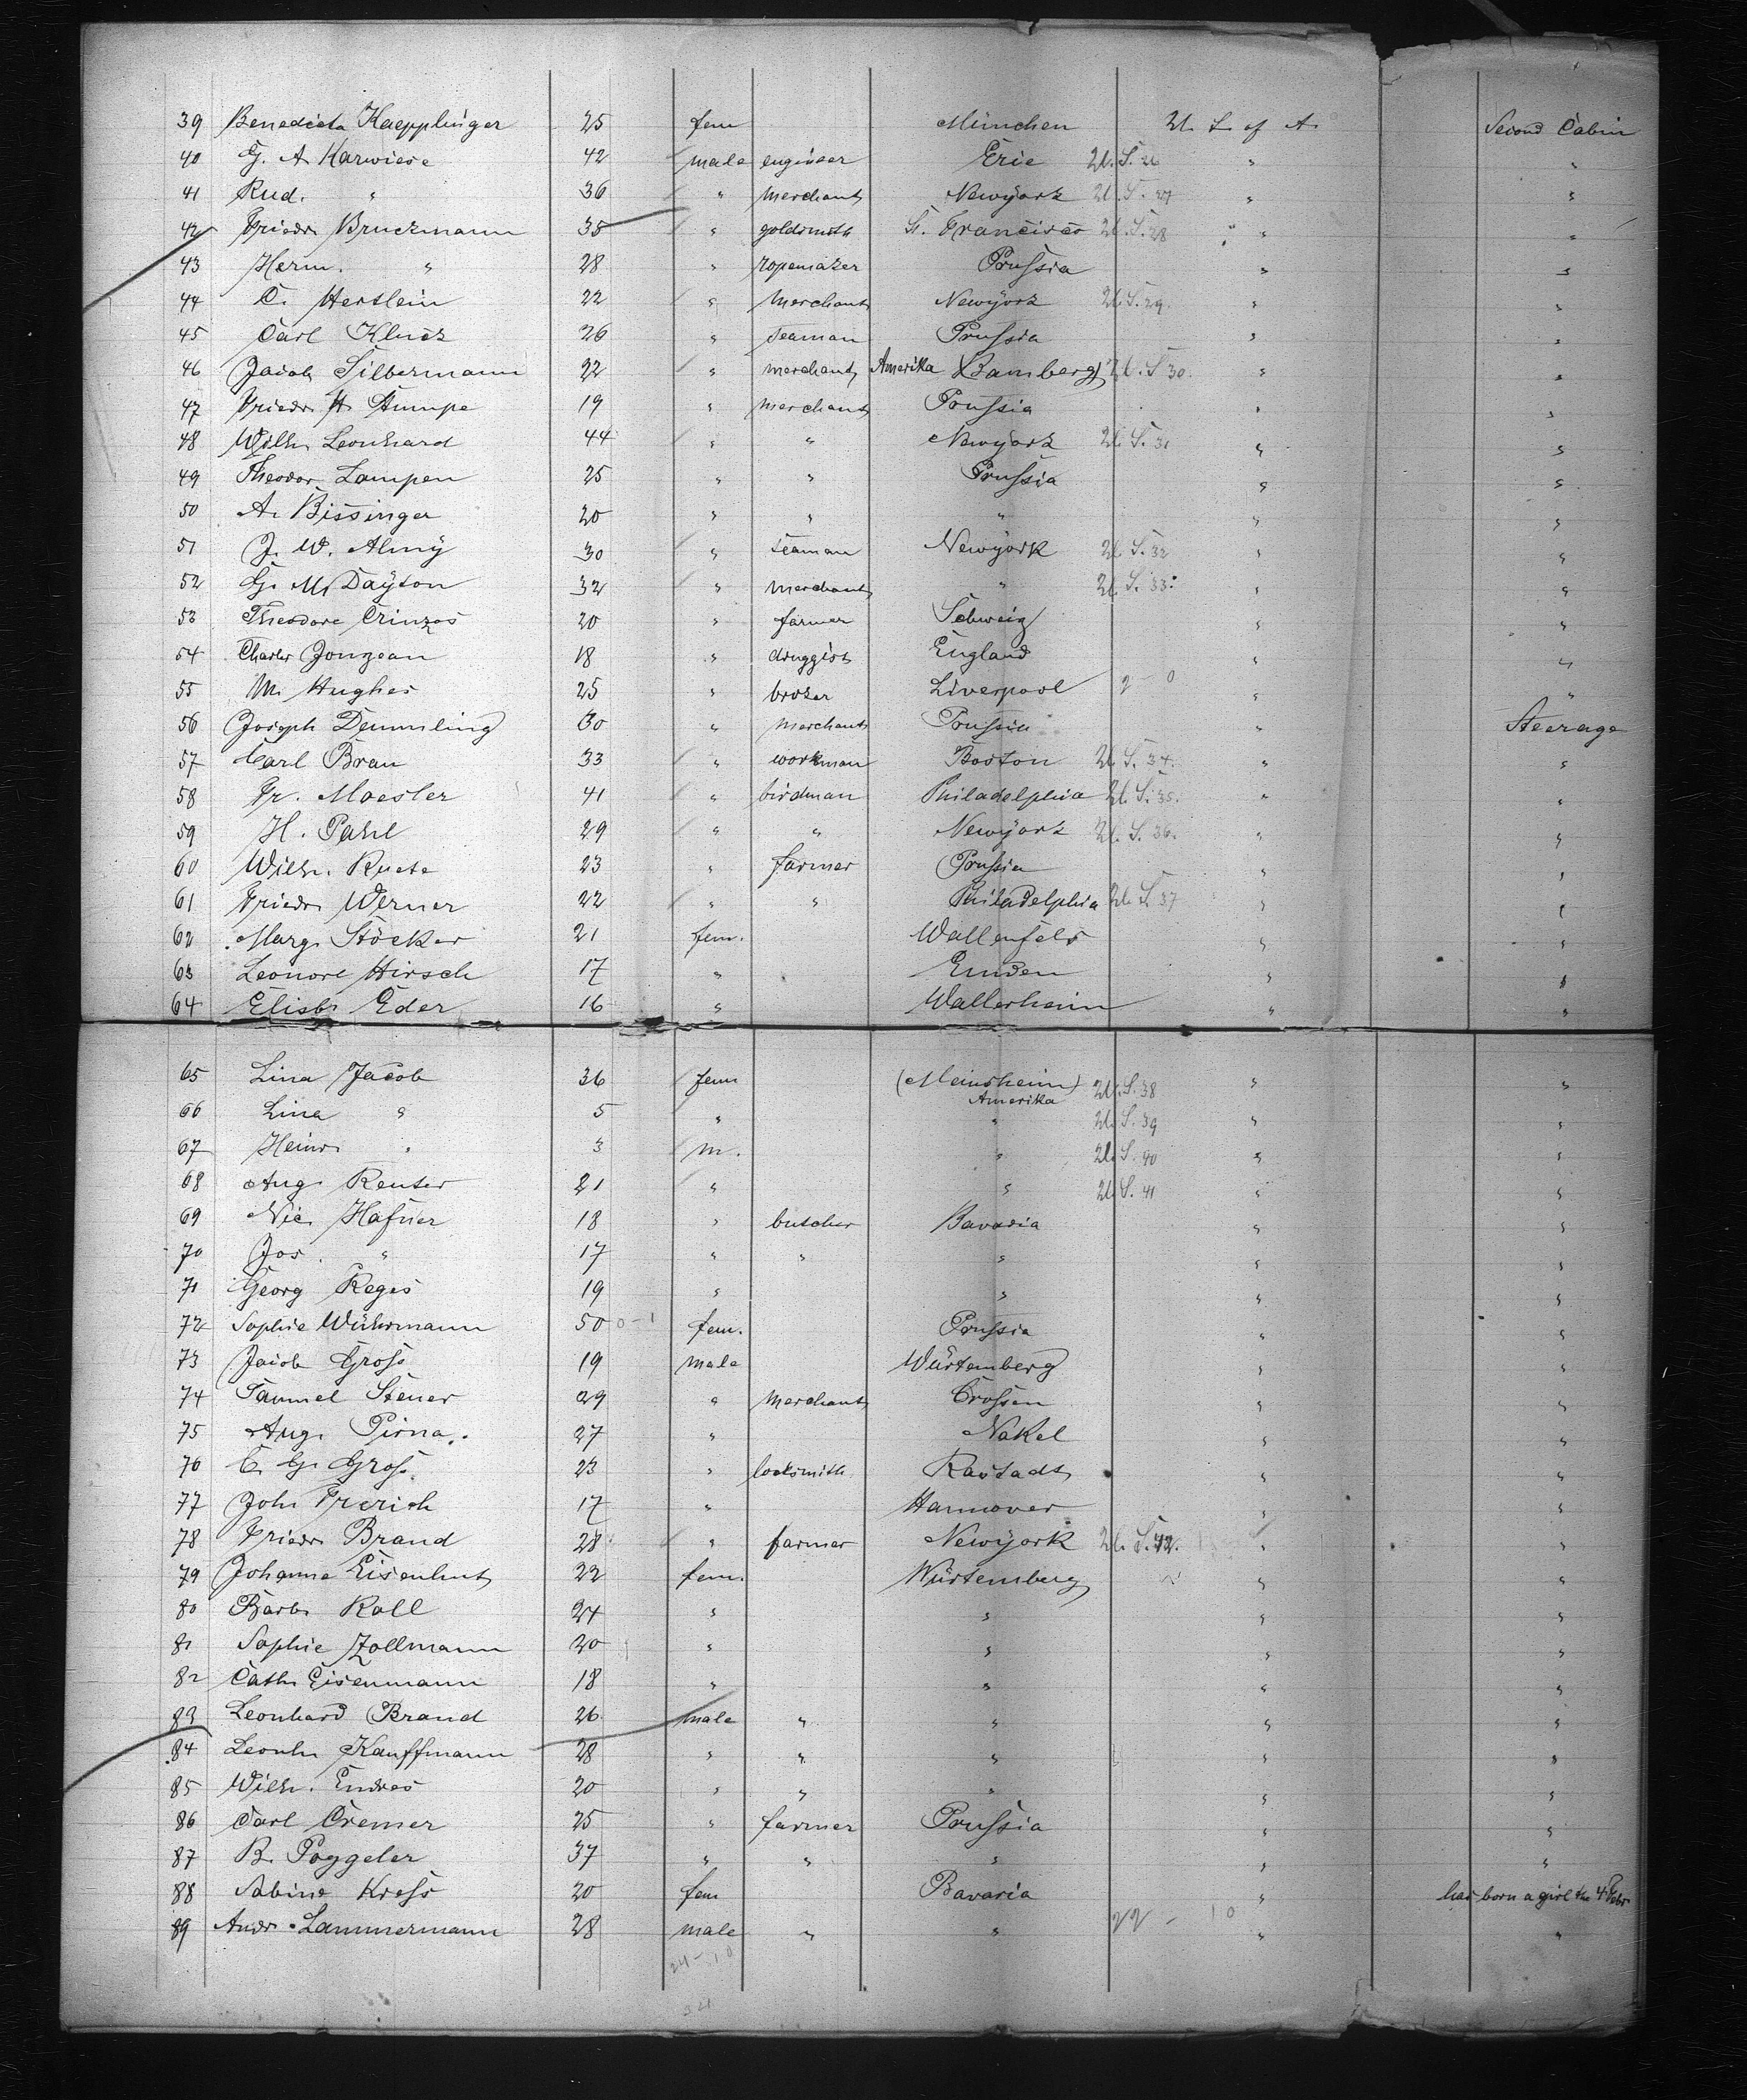 39 Benedicta Kaepplinger 25 fem München U. S. of A. Second Cabin
40 G. A. Karwiese 42 male engineer Erie U. S. 26 " "
41 Rud. " 36 " merchant Newyork U. S. 27 " "
42 Friedr. Bruckmann 35 " goldsmith St. Francisco U. S. 28 " "
43 Herm. " 28 " ropemaker Prussia " "
44 C. Hertlein 22 " merchant Newyork U. S. 29. " "
45 Carl Kluck 26 " seaman Prussia " "
46 Jacob Silbermann 22 " merchant Amerika (Bamberg) U. S. 30. " "
47 Friedr. A. Stumpe 19 " merchant Prussia " "
48 Wilh. Leonhard 44 " " Newyork U. S. 31 " "
49 Theodor Lampen 25 " " Prussia " "
50 A. Bissinger 20 " " " " "
51 J. W. Almy 30 " seaman Newyork U. S. 32 " "
52 G. M. Dayton 32 " merchant " U. S. 33. " "
53 Theodore Crinzos 20 " farmer Schweiz " "
54 Charles Jouzean 18 " druggist England " "
55 M. Hughes 25 " broker Liverpool 2 - 0 " "
56 Joseph Demmling 30 " merchant Prussia " Steerage
57 Carl Brau 33 " workman Boston U. S. 34. " "
58 Fr. Moesler 41 " birdman Philadelphia U. S. 35. " "
59 H. Pahl 29 " " Newyork U. S. 36. " "
60 Wilh. Ruete 23 " farmer Prussia " "
61 Friedr. Werner 22 " " Philadelphia U. S. 37 " "
62 Marg. Stöcker 21 fem. Wallenfels " "
63 Leonore Hirsch 17 " Emden " "
64 Elisb. Eder 16 " Wallerheim " "
65 Lina Jacob 36 fem (Meinsheim) U. S. 38 " "
Amerika
66 Lina " 5 " " U. S. 39 " "
67 Heinr. " 3 m. " U. S. 40 " "
68 Aug. Reuter 21 " " U. S. 41 " "
69 Nic. Hafner 18 " butcher Bavaria " "
70 Jos. " 17 " " " " "
71 Georg Reges 19 " " " "
72 Sophie Wührmann 50 0-1 fem. Prussia " "
73 Jacob Gross 19 male Würtemberg " "
74 Samuel Steuer 29 " merchant Crossen " "
75 Aug. Pirna 27 " Nakel " "
76 C. G. Gross 23 " locksmith Rastadt " "
77 Joh. Frerich 17 " Hannover " "
78 Friedr. Brand 28 " farmer Newyork U. S. 42. " "
79 Johanne Eisenhut 22 fem. Würtemberg " "
80 Barb. Roll 24 " " " "
81 Sophie Zollmann 20 " " " "
82 Cath. Eisenmann 18 " " " "
83 Leonhard Brand 26 male " " " "
84 Leonh. Kauffmann 28 " " " " "
85 Wilh. Endres 20 " " " " "
86 Carl Cremer 25 " farmer Prussia " "
87 B. Poggeler 37 " " " " "
88 Sabine Kress 20 fem Bavaria " has born a girl the 4 Febr
89 Andr. Lammermann 28 male " " 22 - 10 " "
24 - 10
34